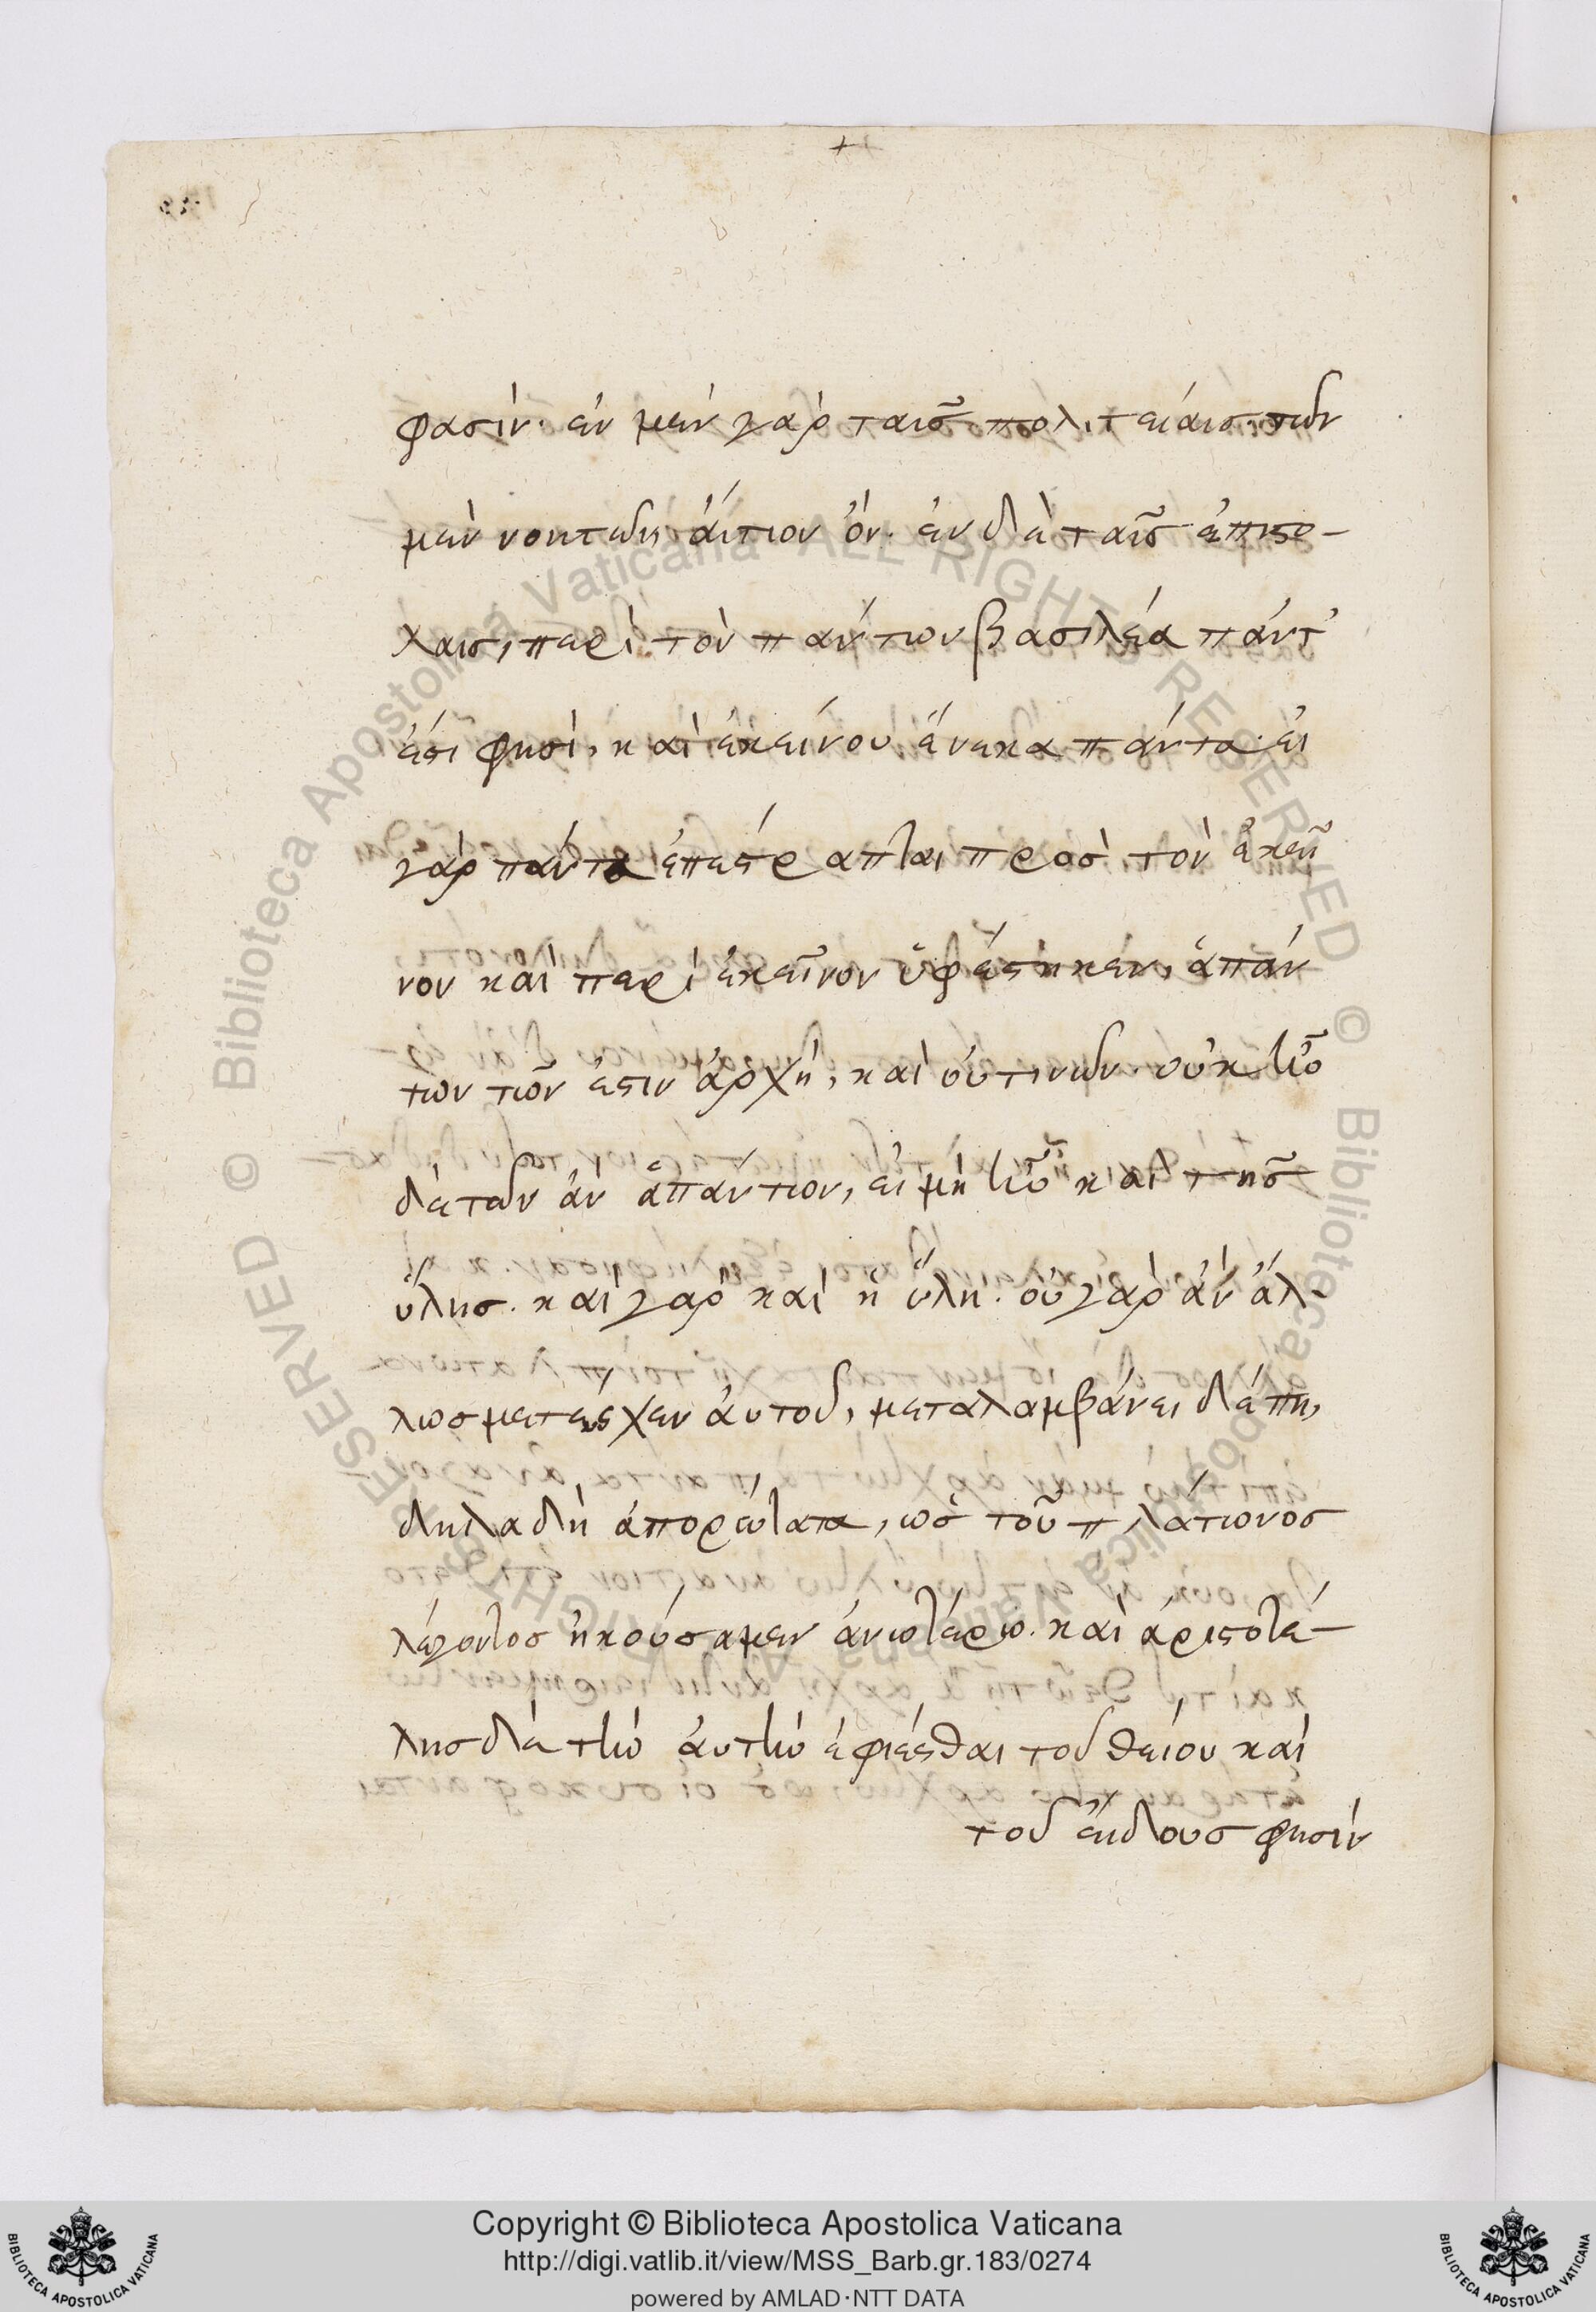 φασίν. ἐν μὲν γὰρ ταῖς πολιτείαις, τῶν
μὲν νοητῶν αἴτιον ὄν. ἐν δὲ ταῖς ἐπιστο-
λαῖς, περὶ τὸν πάντων βασιλέα πάντ'
ἐστί φησι, καὶ ἐκείνου ἕνεκα πάντα· εἰ
γὰρ πάντα ἐπέστραπται πρὸς τὸν ἐκεῖ
νον καὶ περὶ ἐκεῖνον ὑφέστηκεν, ἁπάν
των τῶν ἐστιν ἀρχή, καὶ οὔτινῶν. οὐκ ἦν
δὲ τῶν ἂν ἁπάντων, εἰ μὴ ἦν καὶ τῆς
ὕλης. καὶ γὰρ καὶ ἡ ὕλη. οὐ γὰρ ἂν ἄλ-
λως μετέσχεν αὐτοῦ, μεταλαμβάνει δέ πη,
δηλαδὴ ἀπορώτατα, ὡς τοῦ πλάτωνος
λέγοντος ἠκούσαμεν ἀνωτέρω. καὶ ἀριστοτέ-
λης δὲ τὴν αὐτὴν ἐφίεσθαι τοῦ θείου καὶ
τοῦ εἴδους φησίν
Copyright © Biblioteca Apostolica Vaticana
http://digi.vatlib.it/view/MSS_Barb.gr.183/0274
powered by AMLAD·NTT DATA